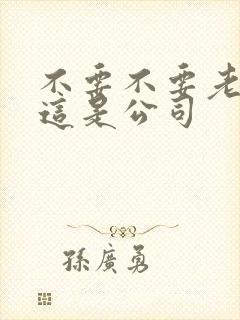 不要不要老
這是公司
孫廣勇